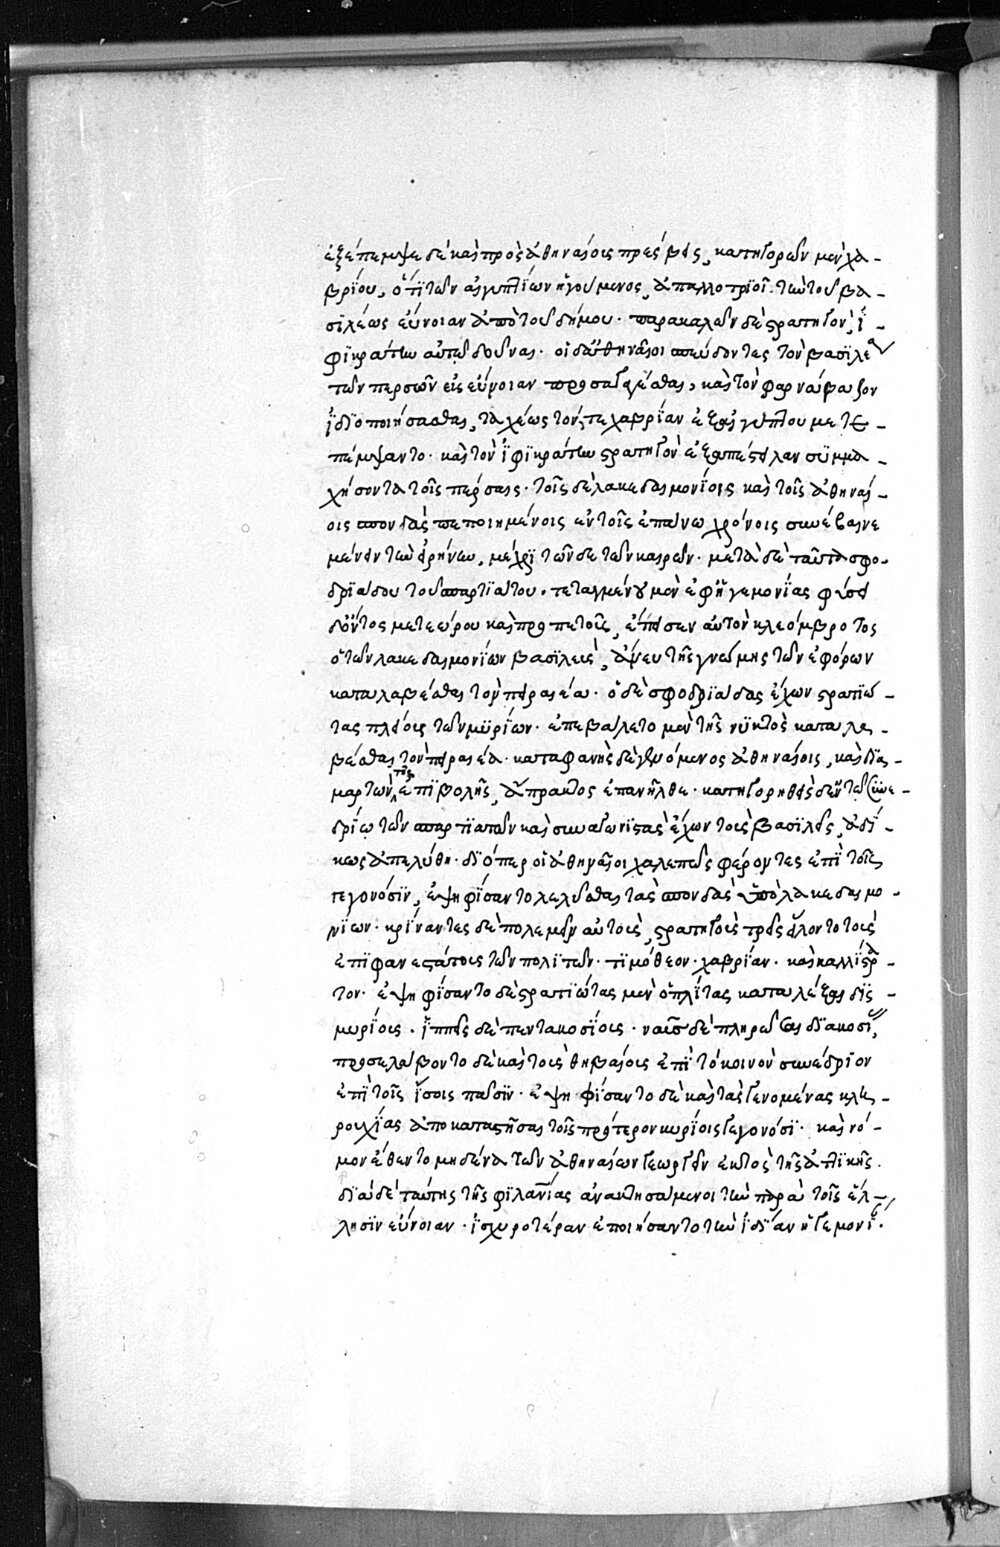 ἐξέπεμψε δὲ καὶ πρὸς ἀθηναίοις πρέσβεις, κατηγορῶν μὲν χα-
βρίου, ὅτι τῶν αἰγυπτίων ἡγούμενος, ἀπαλλοτριοῖ τὴν τοῦ βα-
σιλέως εὔνοιαν ἀπὸ τοῦ δήμου· παρακαλῶν δὲ στρατηγὸν, ἰ-
φικράτην αὐτῷ δοῦναι· οἱ δ' ἀθηναῖοι σπεύδοντες τὸν βασιλέα
τῶν περσῶν εἰς εὔνοιαν προσαγαγέσθαι, καὶ τὸν φαρνάβαζον
ἰδιοποιήσασθαι, ταχέως τόν τε χαβρίαν ἐξ αἰγύπτου μετε-
πέμψαντο· καὶ τὸν ἰφικράτην στρατηγὸν ἐξαπέστειλαν συμμα-
χήσοντα τοῖς πέρσαις· τοῖς δὲ λακεδαιμονίοις καὶ τοῖς ἀθηναί-
οις σπονδὰς πεποιημένοις ἐν τοῖς ἐπάνω χρόνοις συνέβαινε
μένειν τὴν εἰρήνην, μέχρι τῶνδε τῶν καιρῶν· μετὰ δὲ ταῦτα σφο-
δριάδου τοῦ σπαρτιάτου, τεταγμένου μὲν ἐφ' ἡγεμονίας φύσει
δ' ὄντος μετεώρου καὶ προπετοῦς, ἔπεισεν αὐτὸν κλεόμβροτος
ὁ τῶν λακεδαιμονίων βασιλεὺς, ἄνευ τῆς γνώμης τῶν ἐφόρων
καταλαβέσθαι τὸν πειραιέα· ὁ δὲ σφοδριάδας ἔχων στρατιώ-
τας πλείοις τῶν μυρίων· ἐπεβάλετο μὲν τῆς νυκτὸς καταλα
βέσθαι τὸν πειραιέα· καταφανὴς δὲ γενόμενος ἀθηναίοις, καὶ δια-
μαρτὼν τῆς ἐπιβολῆς, ἄπρακτος ἐπανῆλθε· κατηγορηθεὶς δ' ἐν τῷ συνε-
δρίῳ τῶν σπαρτιατῶν καὶ συναγωνιστὰς ἔχων τοὺς βασιλεῖς, ἀδί-
κως ἀπελύθη· διόπερ οἱ ἀθηναῖοι χαλεπῶς φέροντες ἐπὶ τοῖς
γεγονόσιν, ἐψηφίσαντο λελύσθαι τὰς σπονδὰς ὑπὸ λακεδαιμο-
νίων· κρίναντες δὲ πολεμεῖν αὐτοὺς, στρατηγοὺς τρεῖς εἵλοντο τοὺς
ἐπιφανεστάτους τῶν πολιτῶν· τιμόθεον· χαβρίαν· καὶ καλλίστρα-
τον· ἐψηφίσαντο δὲ στρατιώτας μὲν ὁπλίτας καταλέξαι δισ-
μυρίοις· ἱππεῖς δὲ πεντακοσίοις· ναῦς δὲ πληρῶσαι διακοσίας,
προσελάβοντο δὲ καὶ τοὺς θηβαίοις ἐπὶ τὸ κοινὸν συνέδριον
ἐπὶ τοῖς ἴσοις πᾶσιν· ἐψηφίσαντο δὲ καὶ τὰς γενομένας κλη-
ρουχίας ἀποκαταστῆσαι τοῖς πρότερον κυρίοις γεγονόσι· καὶ νό-
μον ἔθεντο μηδένα τῶν ἀθηναίων γεωργεῖν ἐκτὸς τῆς ἀττικῆς.
διὰ δὲ ταύτης τῆς φιλανθρωπίας ἀνακτησάμενοι τὴν παρὰ τοῖς ἕλ-
λησιν εὔνοιαν· ἰσχυροτέραν ἐποιήσαντο τὴν ἰδίαν ἡγεμονίαν·